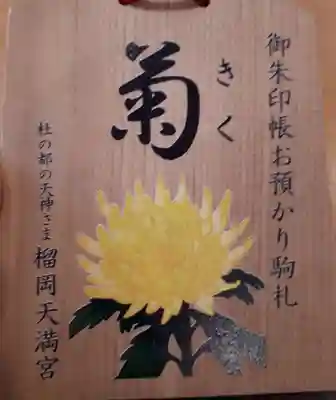 御朱印帳お預かり駒札
菊
きく
杜の都の天神さま 榴岡天満宮